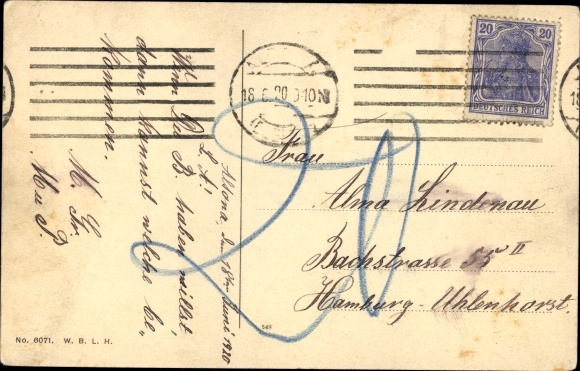 Altona, den 18ten Juni 1920
L. A!
Wenn Du B. haben willst,
dann kannst welche be„
kommen.
M. Gr.
M u P.
18.6.20 9-10N
20 20
DEUTSCHES REICH
20
Frau
Alma Lindenau
Bachstrasse 55 II
Hamburg-Uhlenhorst.
No. 6071. W. B. L. H.